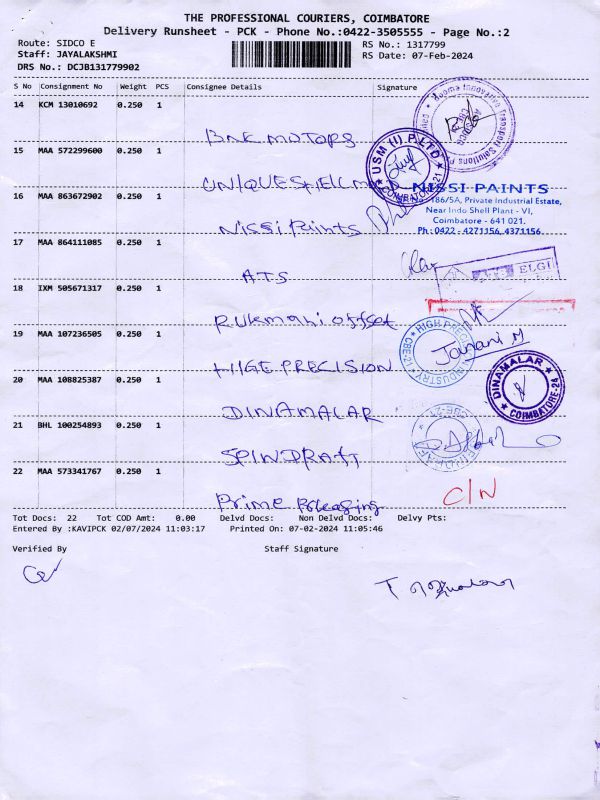 THE PROFESSIONAL COURIERS, COIMBATORE
Delivery Runsheet - PCK - Phone No.:0422-3505555 - Page No.:2
Route: SIDCO E
RS No.: 1317799
Staff: JAYALAKSHMI
RS Date: 07-Feb-2024
DRS No.: DCJB131779902
S No Consignment No Weight PCS Consignee Details Signature
14 KCM 13010692 0.250 1
BNK MOTORS
15 MAA 572299600 0.250 1
USM (I) P.LTD
COIMBATORE-21
16 MAA 863672902 0.250 1
Nissi Paints
NISSI PAINTS
186/5A, Private Industrial Estate,
Near Indo Shell Plant - VI,
Coimbatore - 641 021.
Ph: 0422 - 4271156, 4371156
17 MAA 864111085 0.250 1
ATS
ELGI
18 IXM 505671317 0.250 1
Rukmani offset
19 MAA 107236505 0.250 1
HIGE PRECISION
HIGH PRECISION INDUSTRY
CBE-21
Janani M
20 MAA 108825387 0.250 1
DINAMALAR
DINAMALAR
COIMBATORE-24
21 BHL 100254893 0.250 1
SPINDRAFT
22 MAA 573341767 0.250 1
Prime
C/N
Tot Docs: 22 Tot COD Amt: 0.00 Delvd Docs: Non Delvd Docs: Delvy Pts:
Entered By :KAVIPCK 02/07/2024 11:03:17 Printed On: 07-02-2024 11:05:46
Verified By Staff Signature